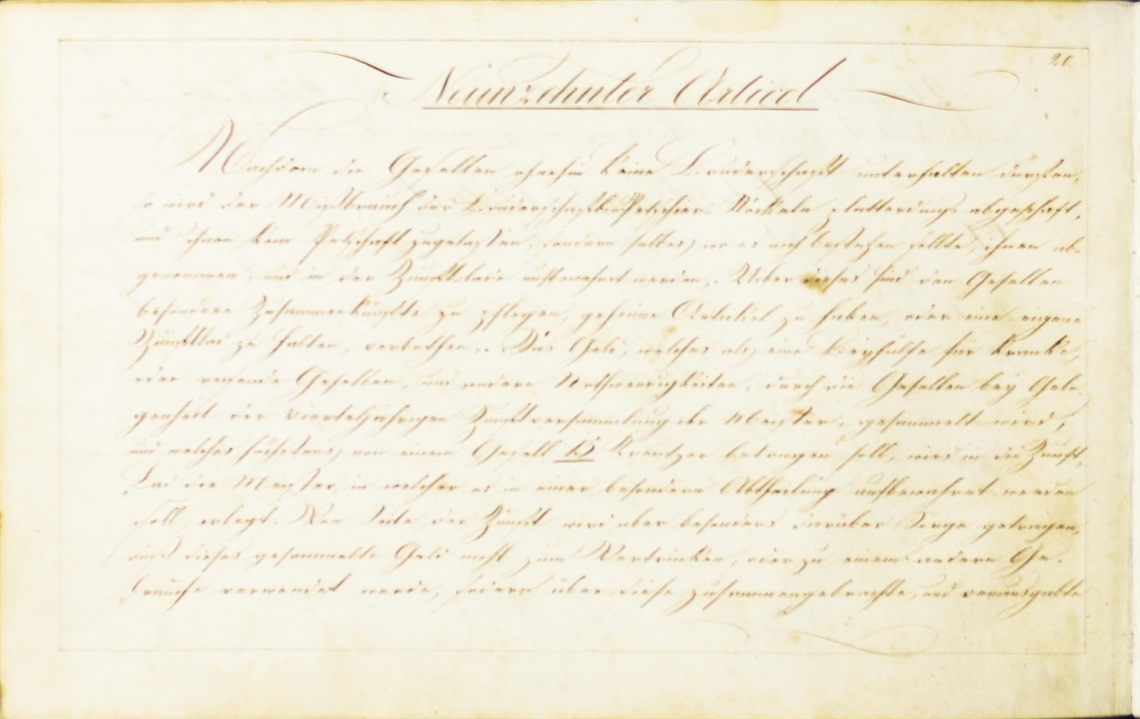 20
Neunzehnter Articel
Nachdem die Gesellen ohnehin keine Bruderschaft unterhalten dürfen,
so wird der Mißbrauch der Bruderschafts Petschier Stöckeln, abgeschaft,
und ihnen kein Petschaft zugelassen, sondern selbes, wo es noch bestehen sollte, ihnen ab-
genommen, und in der Zunftlade aufbewahrt werden. Ueber dieses sind den Gesellen
besondere Zusammenkünfte zu pflegen, geheime Articel zu haben, oder eine eigene
Zunftlad zu halten, verbothen. Das Geld, welches als eine Beyhülfe für Kranke,
oder reisende Gesellen, und andere Nothwendigkeiten, durch die Gesellen bey Gele-
genheit der vierteljährigen Zunftversammlung der Meister, gesammelt wird,
und welches höchstens von einem Gesell Kreutzer betragen soll, wird in die Zunft-
Lad der Meister, in welcher es in einer besondern Abtheilung aufbewahret werden
soll, erlegt. Von Seite der Zunft wird aber besonders darüber Sorge getragen,
daß dieses gesammelte Geld nicht zum Vertrinken, oder zu einem andern Ge-
brauche verwendet werde, sodern über diese zusammengebrachte, und verausgabte